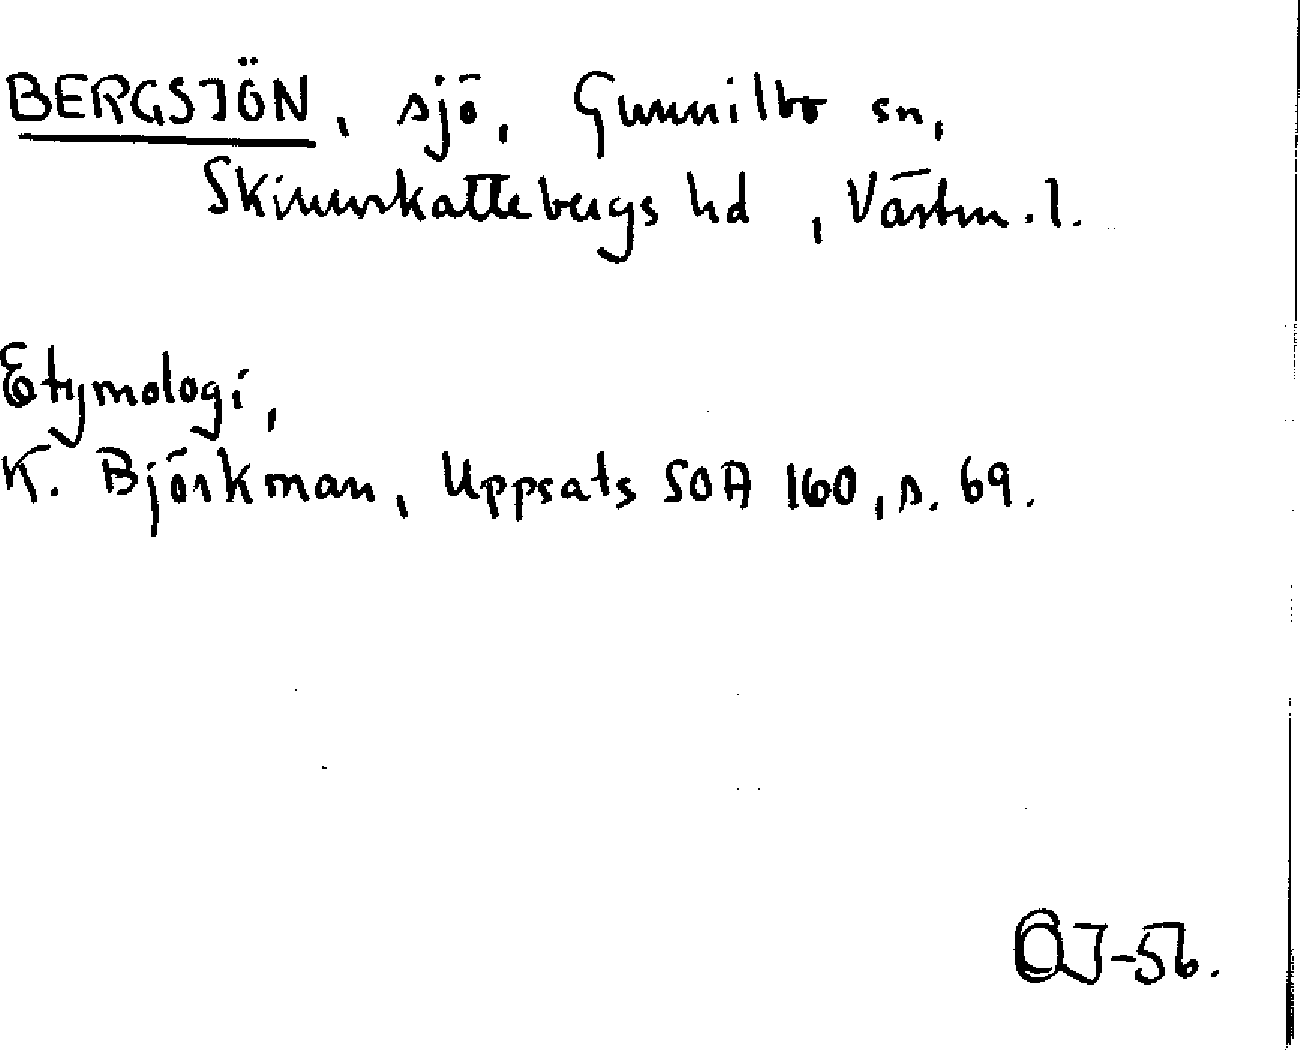 BERGSJÖN, sjö, Gunnilbo sn,
Skinnskattebergs hd, Västm. l.
Etymologi,
K. Björkman, Uppsats SOA 160, s. 69.
OJ-56.